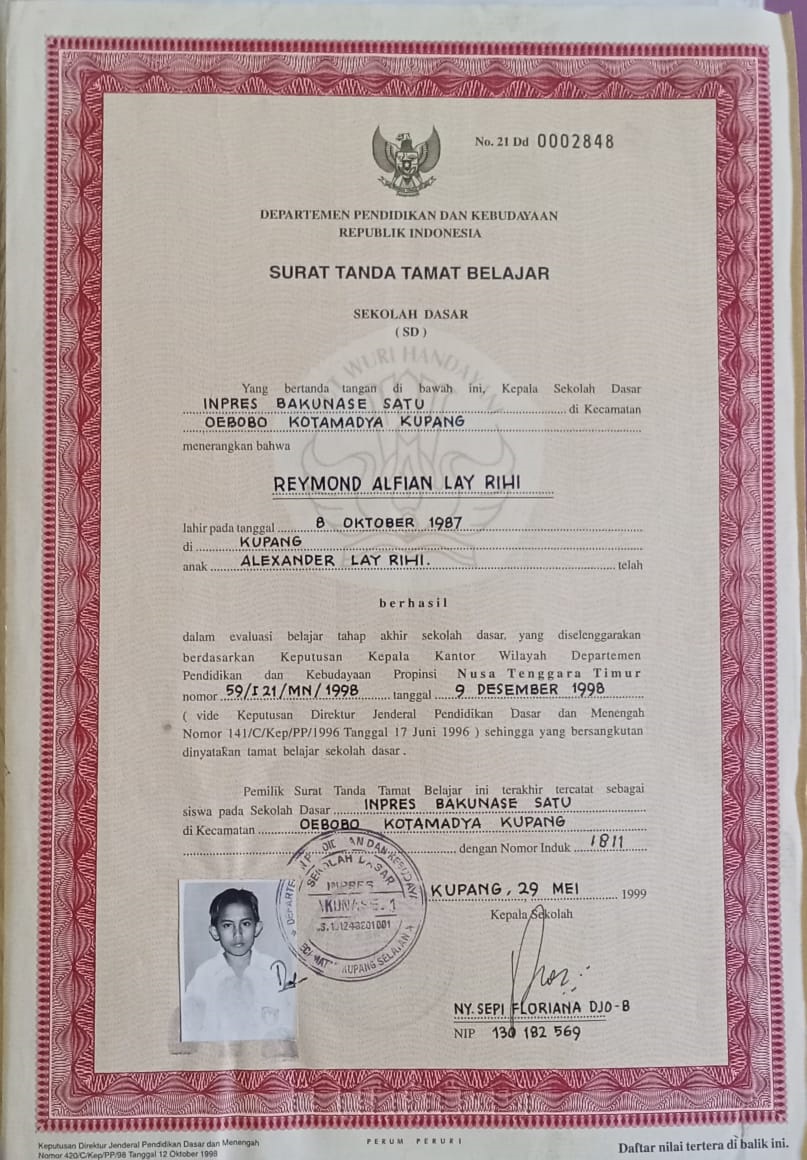 No. 21 Dd 0002848
DEPARTEMEN PENDIDIKAN DAN KEBUDAYAAN
REPUBLIK INDONESIA
SURAT TANDA TAMAT BELAJAR
SEKOLAH DASAR
( SD )
WURI HANDAYANI
Yang bertanda tangan di bawah ini, Kepala Sekolah Dasar
INPRES BAKUNASE SATU di Kecamatan
OEBOBO KOTAMADYA KUPANG
menerangkan bahwa
REYMOND ALFIAN LAY RIHI
lahir pada tanggal 8 OKTOBER 1987
di KUPANG
anak ALEXANDER LAY RIHI. telah
berhasil
dalam evaluasi belajar tahap akhir sekolah dasar, yang diselenggarakan
berdasarkan Keputusan Kepala Kantor Wilayah Departemen
Pendidikan dan Kebudayaan Propinsi Nusa Tenggara Timur
nomor 59/I21/MN/1998 tanggal 9 DESEMBER 1998
( vide Keputusan Direktur Jenderal Pendidikan Dasar dan Menengah
Nomor 141/C/Kep/PP/1996 Tanggal 17 Juni 1996 ) sehingga yang bersangkutan
dinyatakan tamat belajar sekolah dasar .
Pemilik Surat Tanda Tamat Belajar ini terakhir tercatat sebagai
siswa pada Sekolah Dasar INPRES BAKUNASE SATU
di Kecamatan OEBOBO KOTAMADYA KUPANG
dengan Nomor Induk 1811
SEKOLAH DASAR
INPRES
KUPANG, 29 MEI 1999
Kepala Sekolah
NY. SEPI FLORIANA DJO-B
NIP 130 182 569
Keputusan Direktur Jenderal Pendidikan Dasar dan Menengah
Nomor 420/C/Kep/PP/98 Tanggal 12 Oktober 1998
PERUM PERURI
Daftar nilai tertera di balik ini.